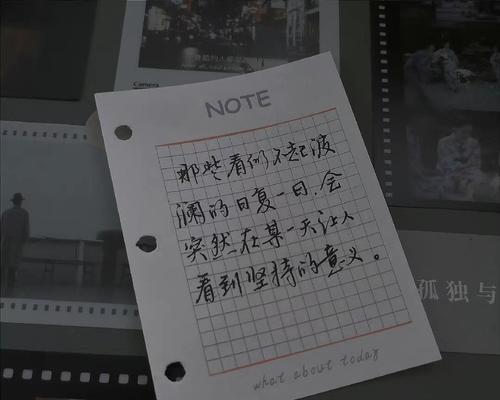 NOTE
那些看似不起波
澜的日复一日,会
突然在某一天让人
看到坚持的意义。
what about today
Camera
孤独与